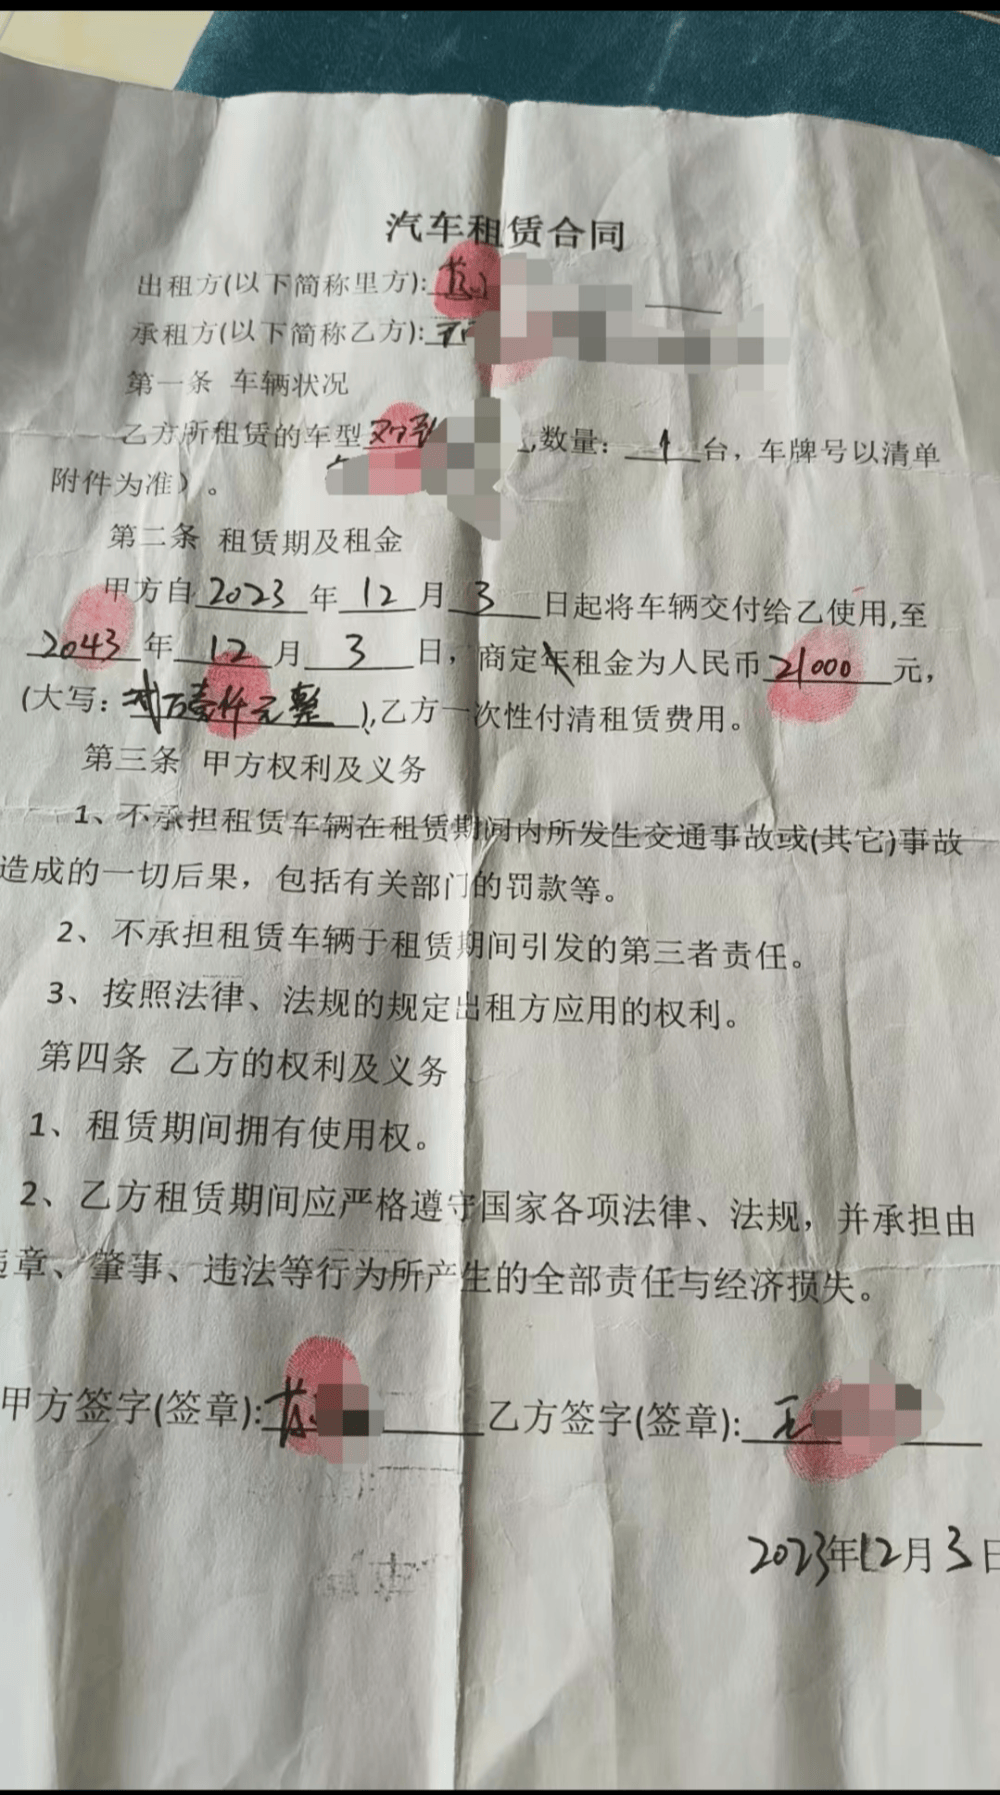 汽车租赁合同
出租方(以下简称里方):
承租方(以下简称乙方):
第一条 车辆状况
乙方所租赁的车型 数量: 1 台，车牌号以清单
附件为准）。
第二条 租赁期及租金
甲方自 2023 年 12 月 3 日起将车辆交付给乙使用,至
2043 年 12 月 3 日，商定年租金为人民币 21000 元，
(大写: 贰万壹仟元整 ),乙方一次性付清租赁费用。
第三条 甲方权利及义务
1、不承担租赁车辆在租赁期间内所发生交通事故或(其它)事故
造成的一切后果，包括有关部门的罚款等。
2、不承担租赁车辆于租赁期间引发的第三者责任。
3、按照法律、法规的规定出租方应用的权利。
第四条 乙方的权利及义务
1、租赁期间拥有使用权。
2、乙方租赁期间应严格遵守国家各项法律、法规，并承担由
违章、肇事、违法等行为所产生的全部责任与经济损失。
甲方签字(签章): 乙方签字(签章): 王
2023年12月3日